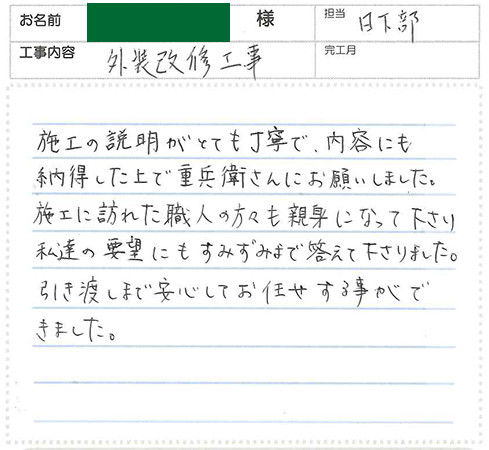 お名前 様 担当 日下部
工事内容 外装改修工事 完工月
施工の説明がとても丁寧で、内容にも
納得した上で重兵衛さんにお願いしました。
施工に訪れた職人の方々も親身になって下さり
私達の要望にもすみずみまで答えて下さりました。
引き渡しまで安心してお任せする事がで
きました。